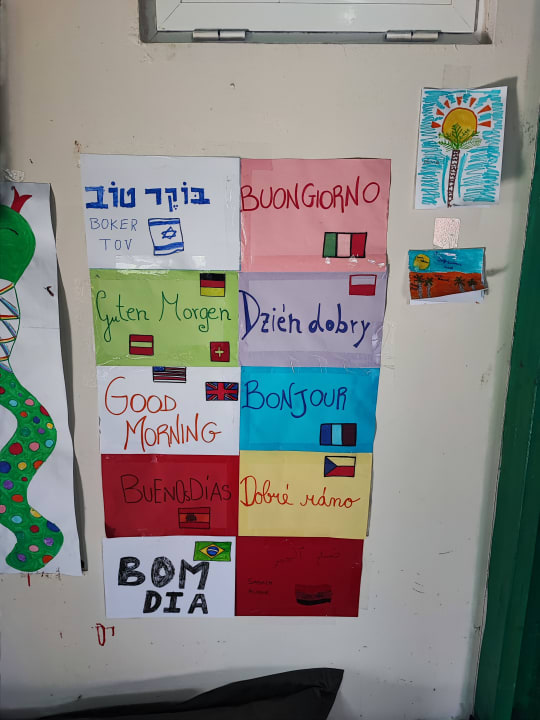 בּוֹקֶר טוֹב
BOKER
TOV
BUONGIORNO
Guten Morgen
Dzién dobry
GOOD
MORNING
BONJOUR
BUENOS DÍAS
Dobré ráno
BOM
DIA